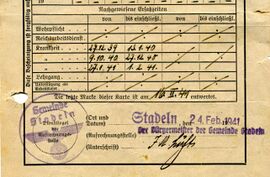 Nachgewiesene Ersatzzeiten
von bis einschließl. von bis einschließl.
Wehrpflicht
Reichsarbeitsdienst
Krankheit 27.12.39 13.1.40
9.10.40 27.12.40
27.1.41 1.2.41
Lehrgang
Die letzte Marke dieser Karte ist am entwertet.
Gemeinde
Stadeln
(Ort und Datum) Stadeln, 24. Feb. 1941
(Aufrechnungsstelle) Der Bürgermeister der Gemeinde Stadeln
(Unterschrift)